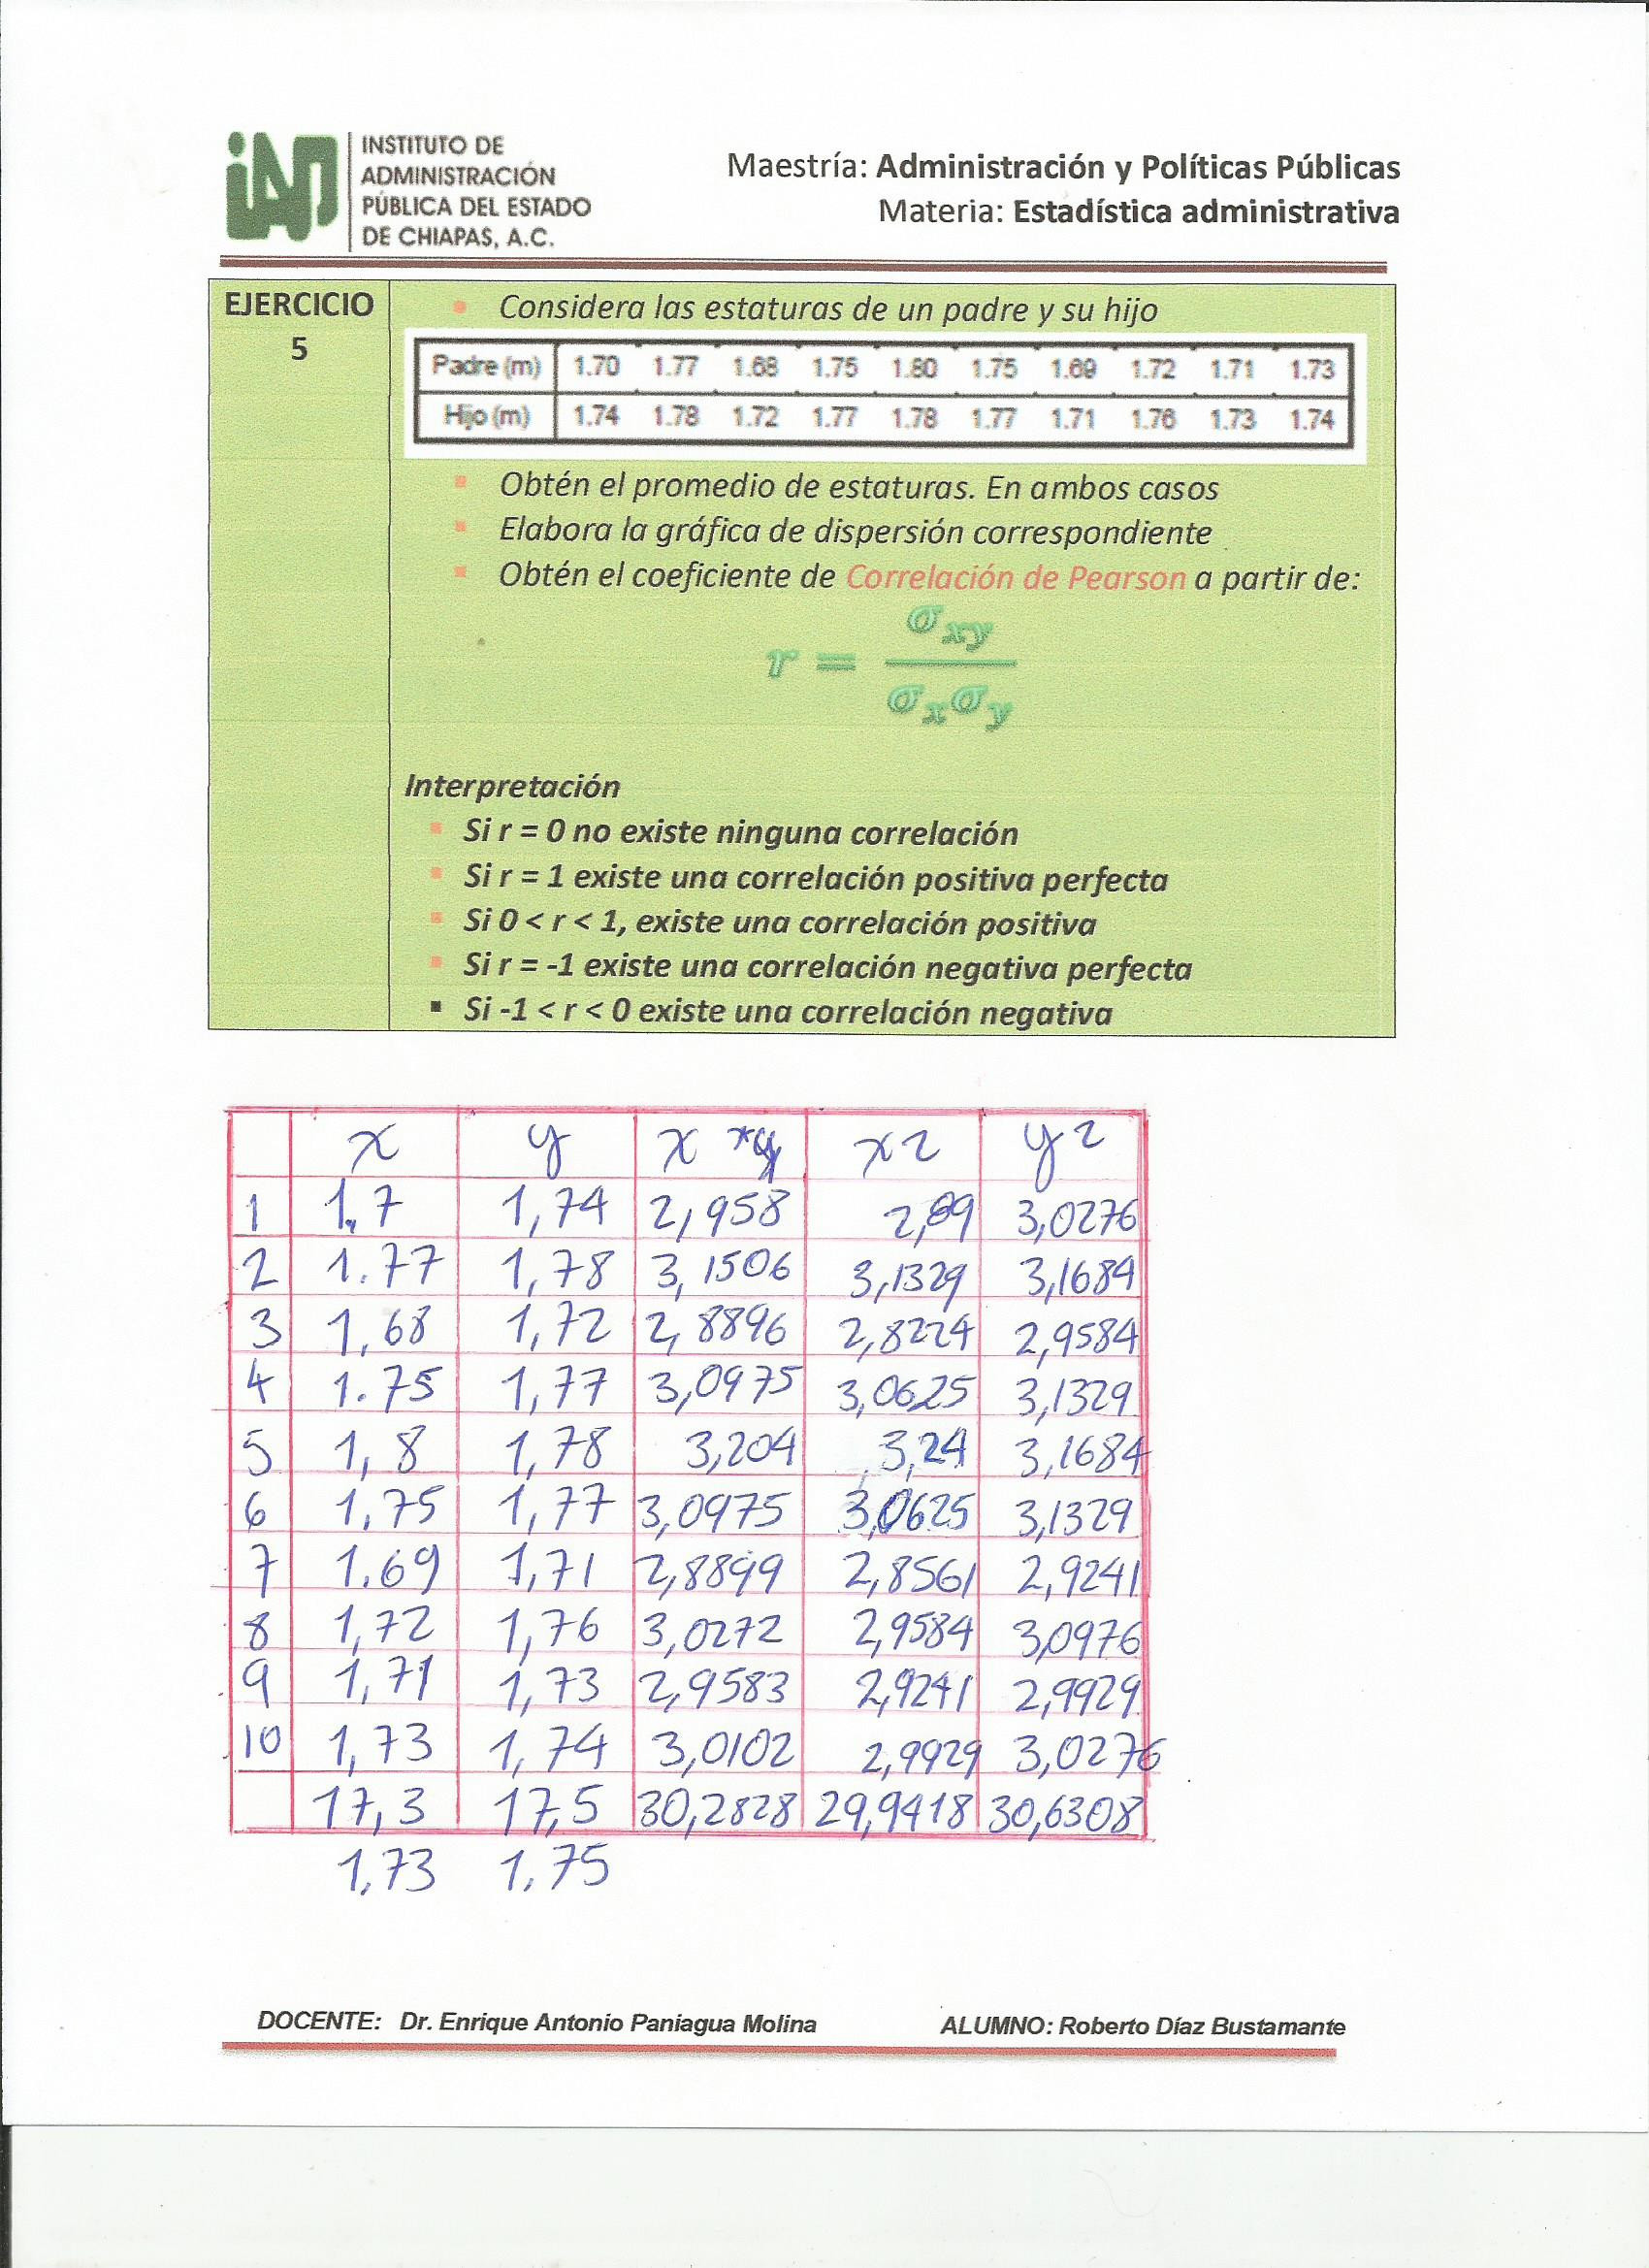 INSTITUTO DE
ADMINISTRACIÓN
PÚBLICA DEL ESTADO
DE CHIAPAS, A.C.
Maestría: Administración y Políticas Públicas
Materia: Estadística administrativa
EJERCICIO
5
Considera las estaturas de un padre y su hijo
Padre (m) 1.70 1.77 1.68 1.75 1.80 1.75 1.69 1.72 1.71 1.73
Hijo (m) 1.74 1.78 1.72 1.77 1.78 1.77 1.71 1.76 1.73 1.74
Obtén el promedio de estaturas. En ambos casos
Elabora la gráfica de dispersión correspondiente
Obtén el coeficiente de Correlación de Pearson a partir de:
r = σxy / σxσy
Interpretación
Si r = 0 no existe ninguna correlación
Si r = 1 existe una correlación positiva perfecta
Si 0 < r < 1, existe una correlación positiva
Si r = -1 existe una correlación negativa perfecta
Si -1 < r < 0 existe una correlación negativa
x y x *y x2 y2
1 1,7 1,74 2,958 2,89 3,0276
2 1.77 1,78 3,1506 3,1329 3,1684
3 1,68 1,72 2,8896 2,8224 2,9584
4 1.75 1,77 3,0975 3,0625 3,1329
5 1,8 1,78 3,204 3,24 3,1684
6 1,75 1,77 3,0975 3,0625 3,1329
7 1.69 1,71 2,8899 2,8561 2,9241
8 1,72 1,76 3,0272 2,9584 3,0976
9 1,71 1,73 2,9583 2,9241 2,9929
10 1,73 1,74 3,0102 2,9929 3,0276
17,3 17,5 30,2828 29,9418 30,6308
1,73 1,75
DOCENTE: Dr. Enrique Antonio Paniagua Molina ALUMNO: Roberto Díaz Bustamante